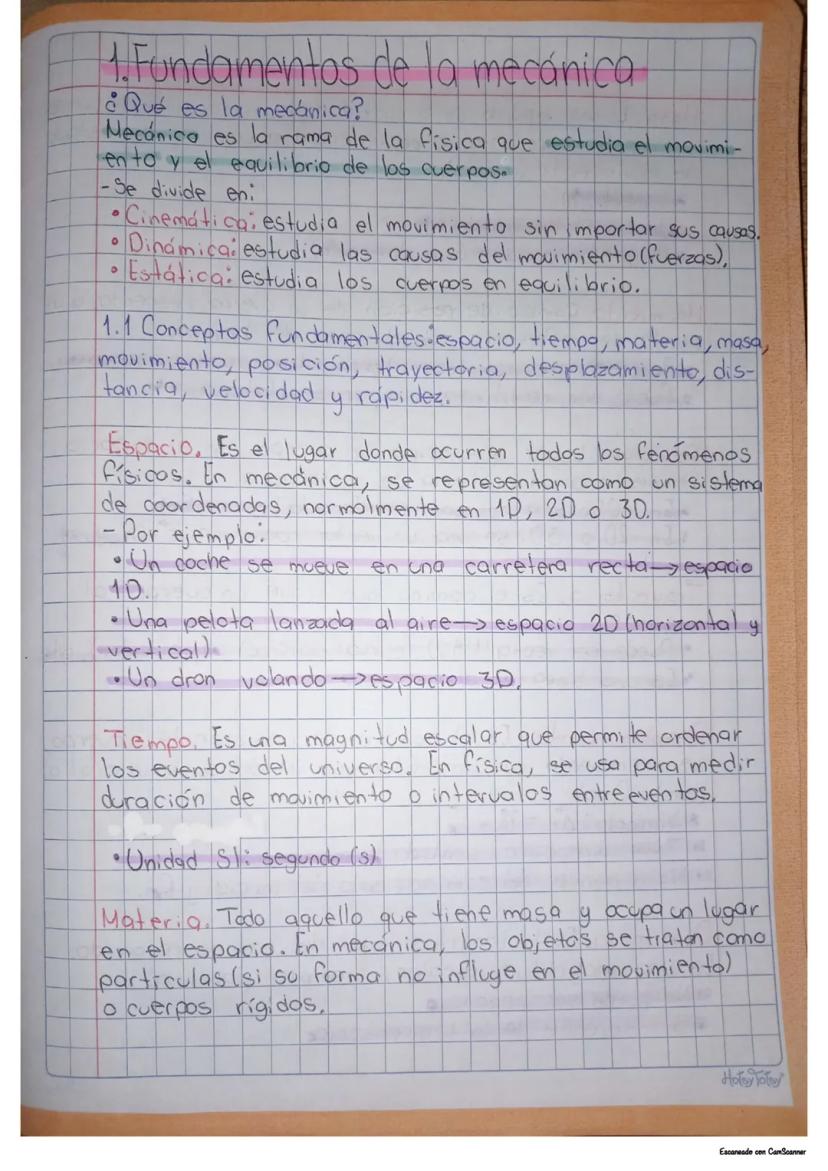 1. Fundamentos de la mecánica
¿Qué es la mecánica?
Mecánica es la rama de la física que estudia el movimi-
ento y el equilibrio de los cuerpos.
- Se divide en:
• Cinemática: estudia el movimiento sin importar sus causas.
• Dinámica: estudia las causas del movimiento (fuerzas).
• Estática: estudia los cuerpos en equilibrio.
1.1 Conceptos fundamentales: espacio, tiempo, materia, masa,
movimiento, posición, trayectoria, desplazamiento, dis-
tancia, velocidad y rápidez.
Espacio. Es el lugar donde ocurren todos los fenómenos
físicos. En mecánica, se representan como un sistema
de coordenadas, normalmente en 1D, 2D o 3D.
- Por ejemplo:
• Un coche se mueve en una carretera recta → espacio
1D.
• Una pelota lanzada al aire → espacio 2D (horizontal y
vertical).
• Un dron volando → espacio 3D.
Tiempo. Es una magnitud escalar que permite ordenar
los eventos del universo. En física, se usa para medir
duración de movimiento o intervalos entre eventos.
• Unidad SI: segundo (s)
Materia. Todo aquello que tiene masa y ocupa un lugar
en el espacio. En mecánica, los objetos se tratan como
partículas (si su forma no influye en el movimiento)
o cuerpos rígidos.
Escaneado con CamScanner